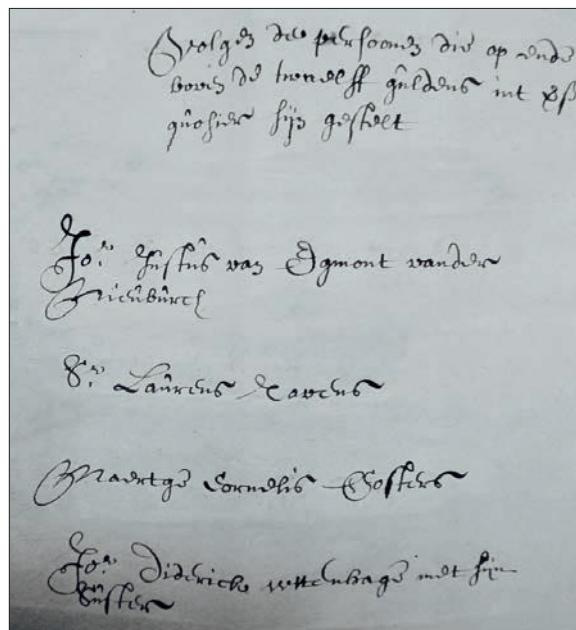 Volgen de persoonen die op ende
boven de twaelff guldens int
quohier sijn gestelt
Jo.r Justus van Egmont vander
Nieuburch
S.r Laurens
Maertge Cornelis Costers
Jo.r Diderick uuttenhage met sijn
Suster